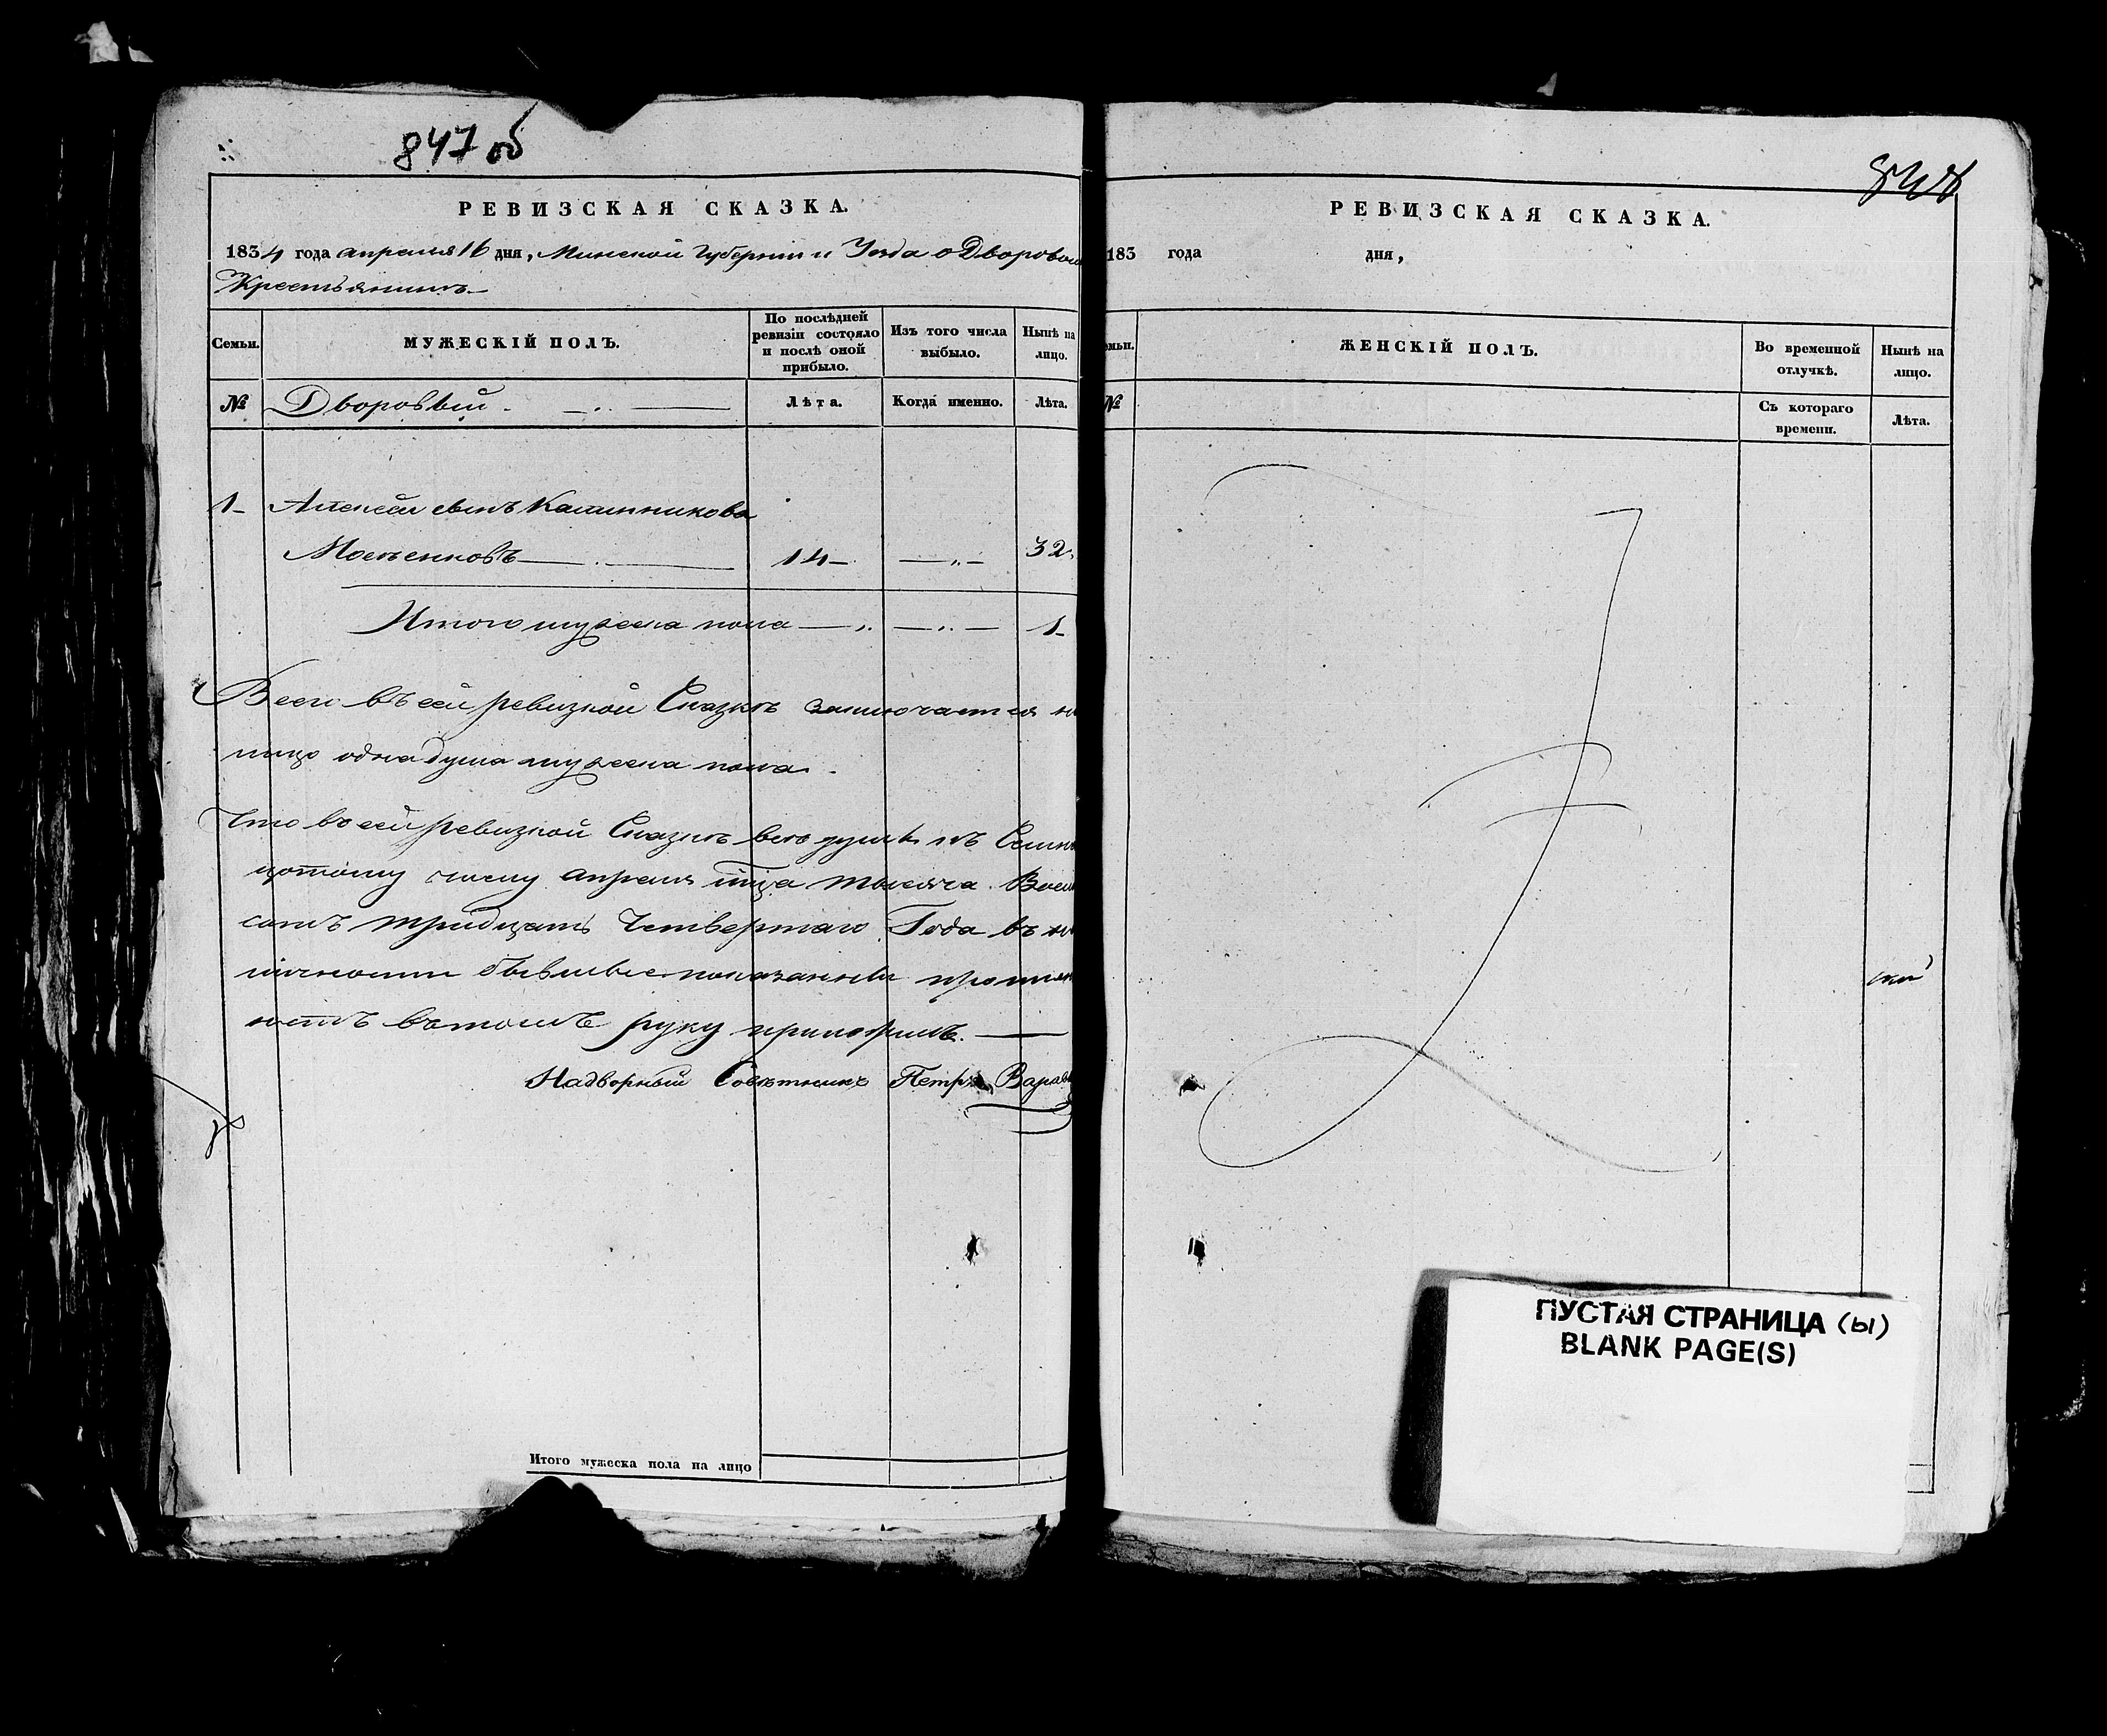 847 об
РЕВИЗСКАЯ СКАЗКА.
1834 года апреля 16 дня, Минской Губернiи и Уезда о Дворовом
Крестьянинѣ.
Семьи.
МУЖЕСКІЙ ПОЛЪ.
По послѣдней ревизіи состояло и послѣ оной прибыло.
Изъ того числа выбыло.
Нынѣ на лицо.
№
Дворовый.
Лѣта.
Когда именно.
Лѣта.
1 Алексей сынъ Калинникова
14 32
Итого мужеска пола 1
Всего въ сей ревизкой Сказкѣ заключается на
лицо одна душа мужеска пола.
Что во сей ревизкой Сказкѣ всѣ души къ
числу апреля тысяча
сотъ тридцать Четвертаго Года въ на
личности бывшые показанны
въ томъ руку приложилъ.
Надворный Советникъ Петръ
Итого мужеска пола на лицо
848
РЕВИЗСКАЯ СКАЗКА.
183 года дня,
ЖЕНСКІЙ ПОЛЪ.
Во временной отлучкѣ.
Нынѣ на лицо.
№
Съ котораго времени.
Лѣта.
ПУСТАЯ СТРАНИЦА (Ы)
BLANK PAGE(S)